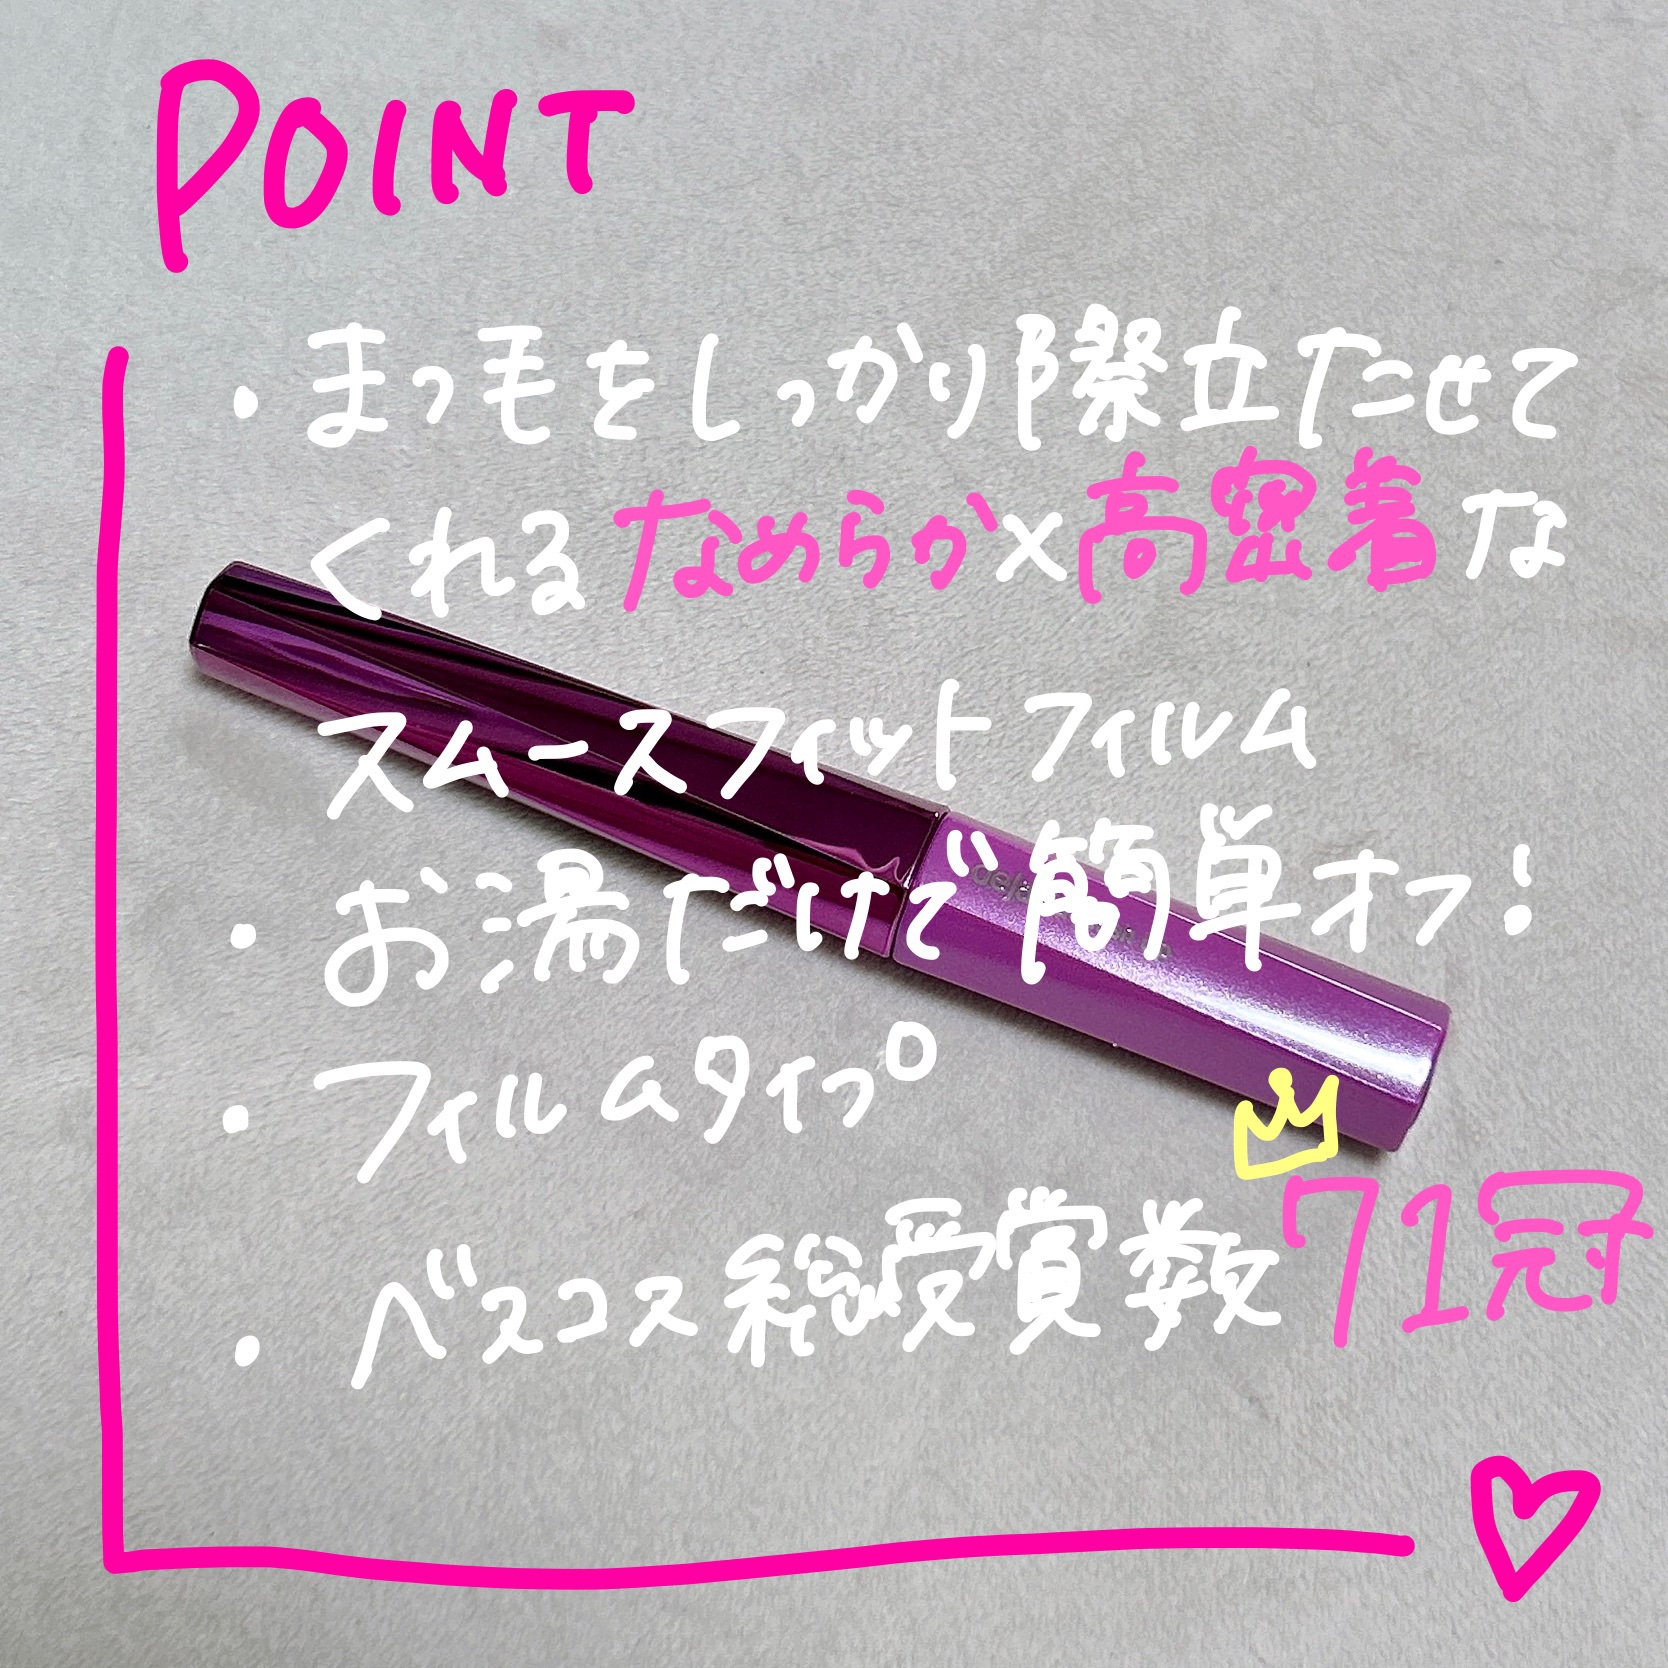 POINT
・まつ毛をしっかり際立たせて
くれるなめらか×高密着な
スムースフィットフィルム
・お湯だけで簡単オフ!
・フィルムタイプ
・ベスコス総受賞数71冠